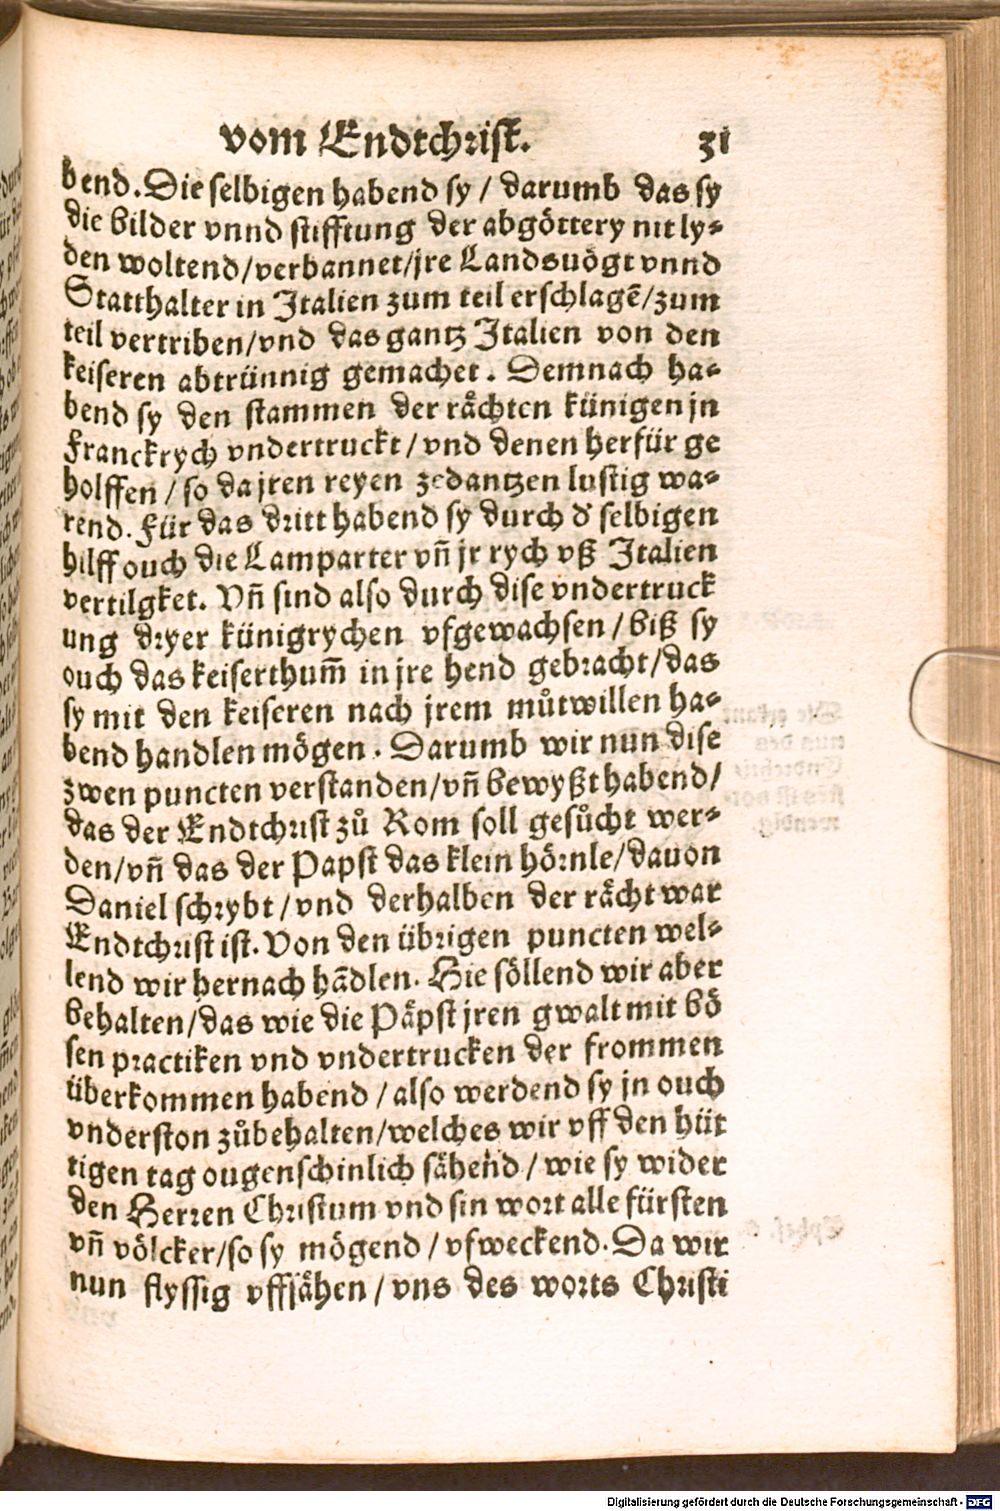 vom Endtchrist. 31
bend. Die selbigen habend sy / darumb das sy
die bilder vnnd stifftung der abgöttery nit ly⸗
den woltend/verbannet/jre Landsuögt vnnd
Statthalter in Italien zum teil erschlagẽ/zum
teil vertriben/vnd das gantz Italien von den
keiseren abtrünnig gemachet. Demnach ha⸗
bend sy den stammen der rächten künigen jn
Franckrych vndertruckt/vnd denen herfür ge
holffen / so da jren reyen zedantzen lustig wa⸗
rend. Für das dritt habend sy durch d' selbigen
hilff ouch die Lamparter vñ jr rych vß Italien
vertilgket. Vñ sind also durch dise vndertruck
ung dryer künigrychen vfgewachsen/biß sy
ouch das keiserthum̃ in jre hend gebracht/das
sy mit den keiseren nach jrem můtwillen ha⸗
bend handlen mögen. Darumb wir nun dise
zwen puncten verstanden/vñ bewyßt habend/
das der Endtchrist zů Rom soll gesůcht wer⸗
den/vñ das der Papst das klein hörnle/dauon
Daniel schrybt/vnd derhalben der rächt war
Endtchrist ist. Von den übrigen puncten wel⸗
lend wir hernach hãdlen. Hie söllend wir aber
behalten/das wie die Päpst jren gwalt mit bö
sen practiken vnd vndertrucken der frommen
überkommen habend / also werdend sy jn ouch
vnderston zůbehalten/welches wir vff den hüt
tigen tag ougenschinlich sähend / wie sy wider
den Herren Christum vnd sin wort alle fürsten
vñ völcker/so sy mögend / vfweckend. Da wir
nun flyssig vffsähen / vns des worts Christi
Digitalisierung gefördert durch die Deutsche Forschungsgemeinschaft - DFG